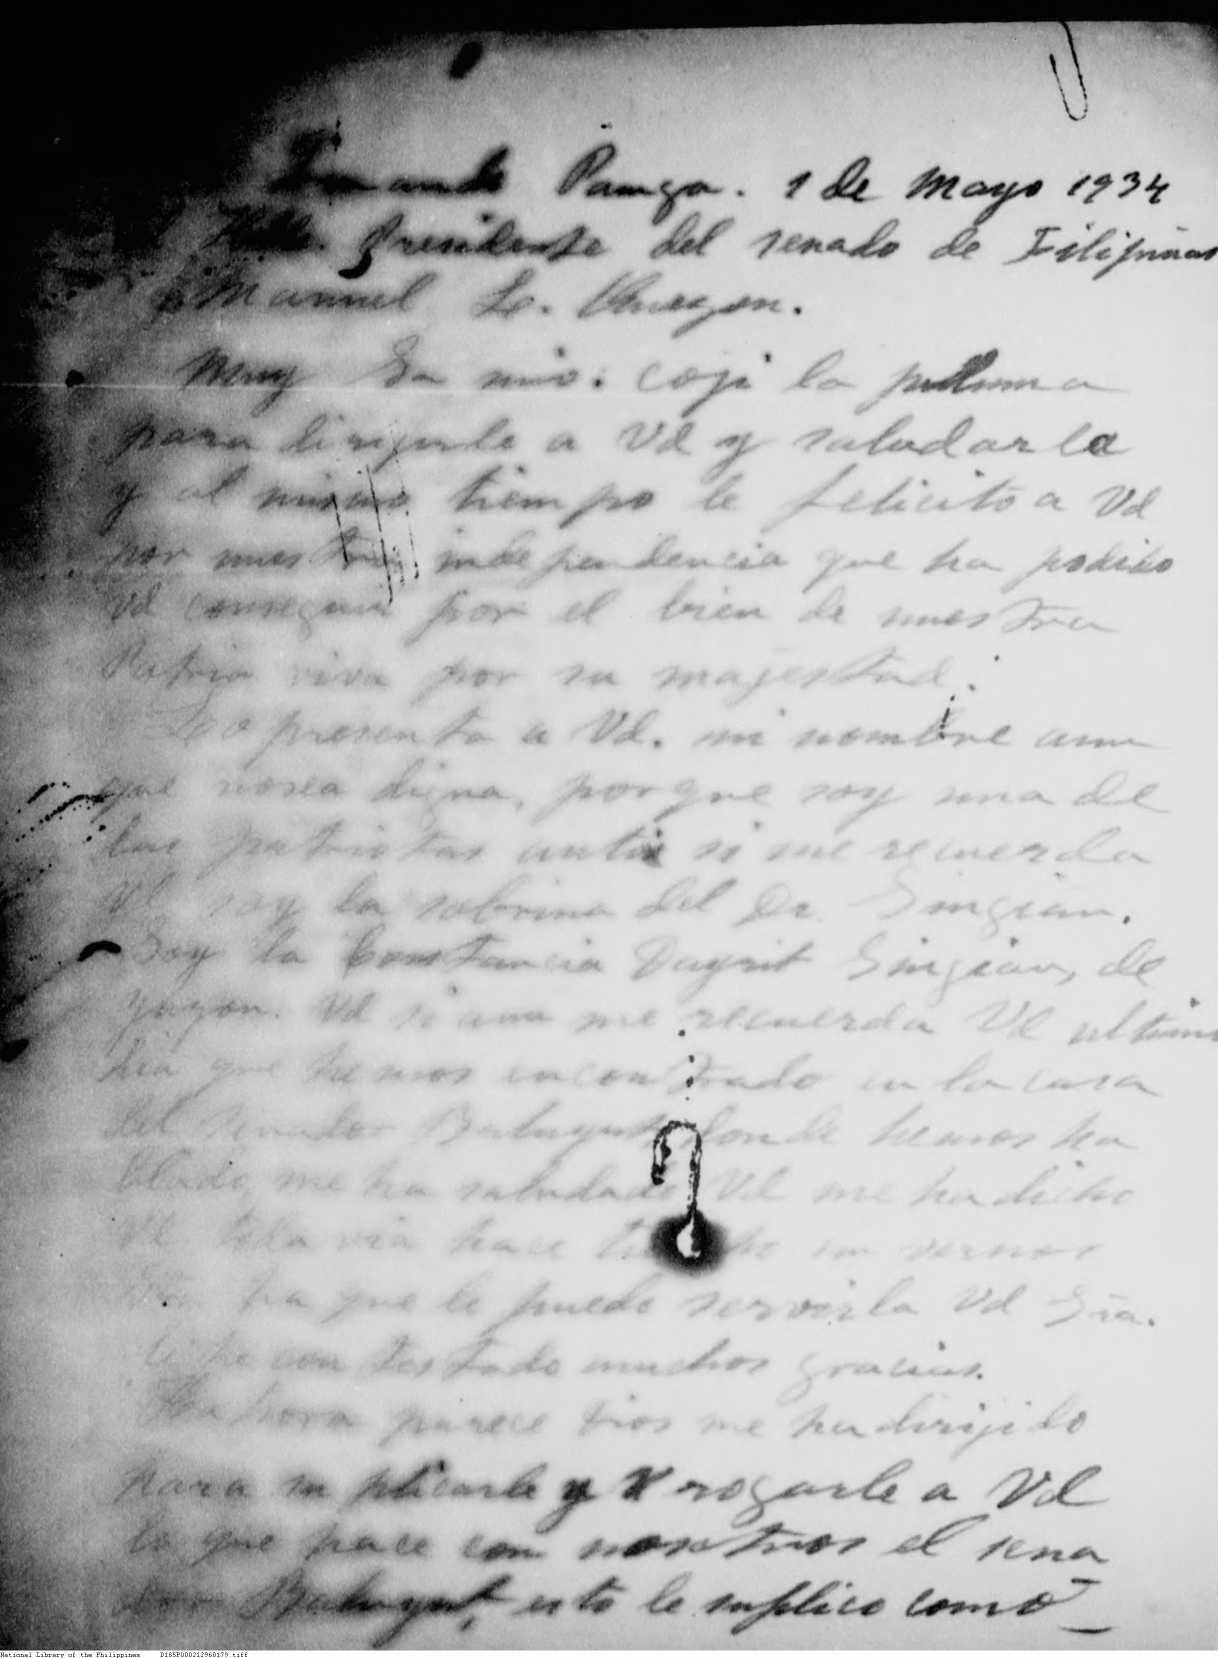 Pamga. 1 de Mayo 1934
Presidente del senado de Filipinas
Manuel L. Quezon.
Muy Sr mio: coji la puluma
para dirigirle a Vd y saludarle
y al mismo tiempo le felicito a Vd
por nuestra independencia que ha podido
Vd conseguir por el bien de nuestra
Patria viva por su majestad.
presento a Vd. mi nombre aun
que nosea digna, porque soy una de
las patriotas antis si me recuerda
Vd soy la sobrina del Dr. Singian.
Soy la Constancia Dayrit Singian, de
Vd si aun me recuerda Vd ultimo
dia que hemos encontrado en la casa
del senador Baluyut donde hemos ha
blado, me ha saludado Vd me ha dicho
Vd toda via hace no vernos
ha que le puedo servirla Vd Sra.
le he contestado muchos gracias.
Ha hora parece Dios me ha dirijido
para suplicarle y rogarle a Vd
lo que hace con nosotros el sena
dor Baluyut, esto le suplico como
National Library of the Philippines D185P000212960179.tiff